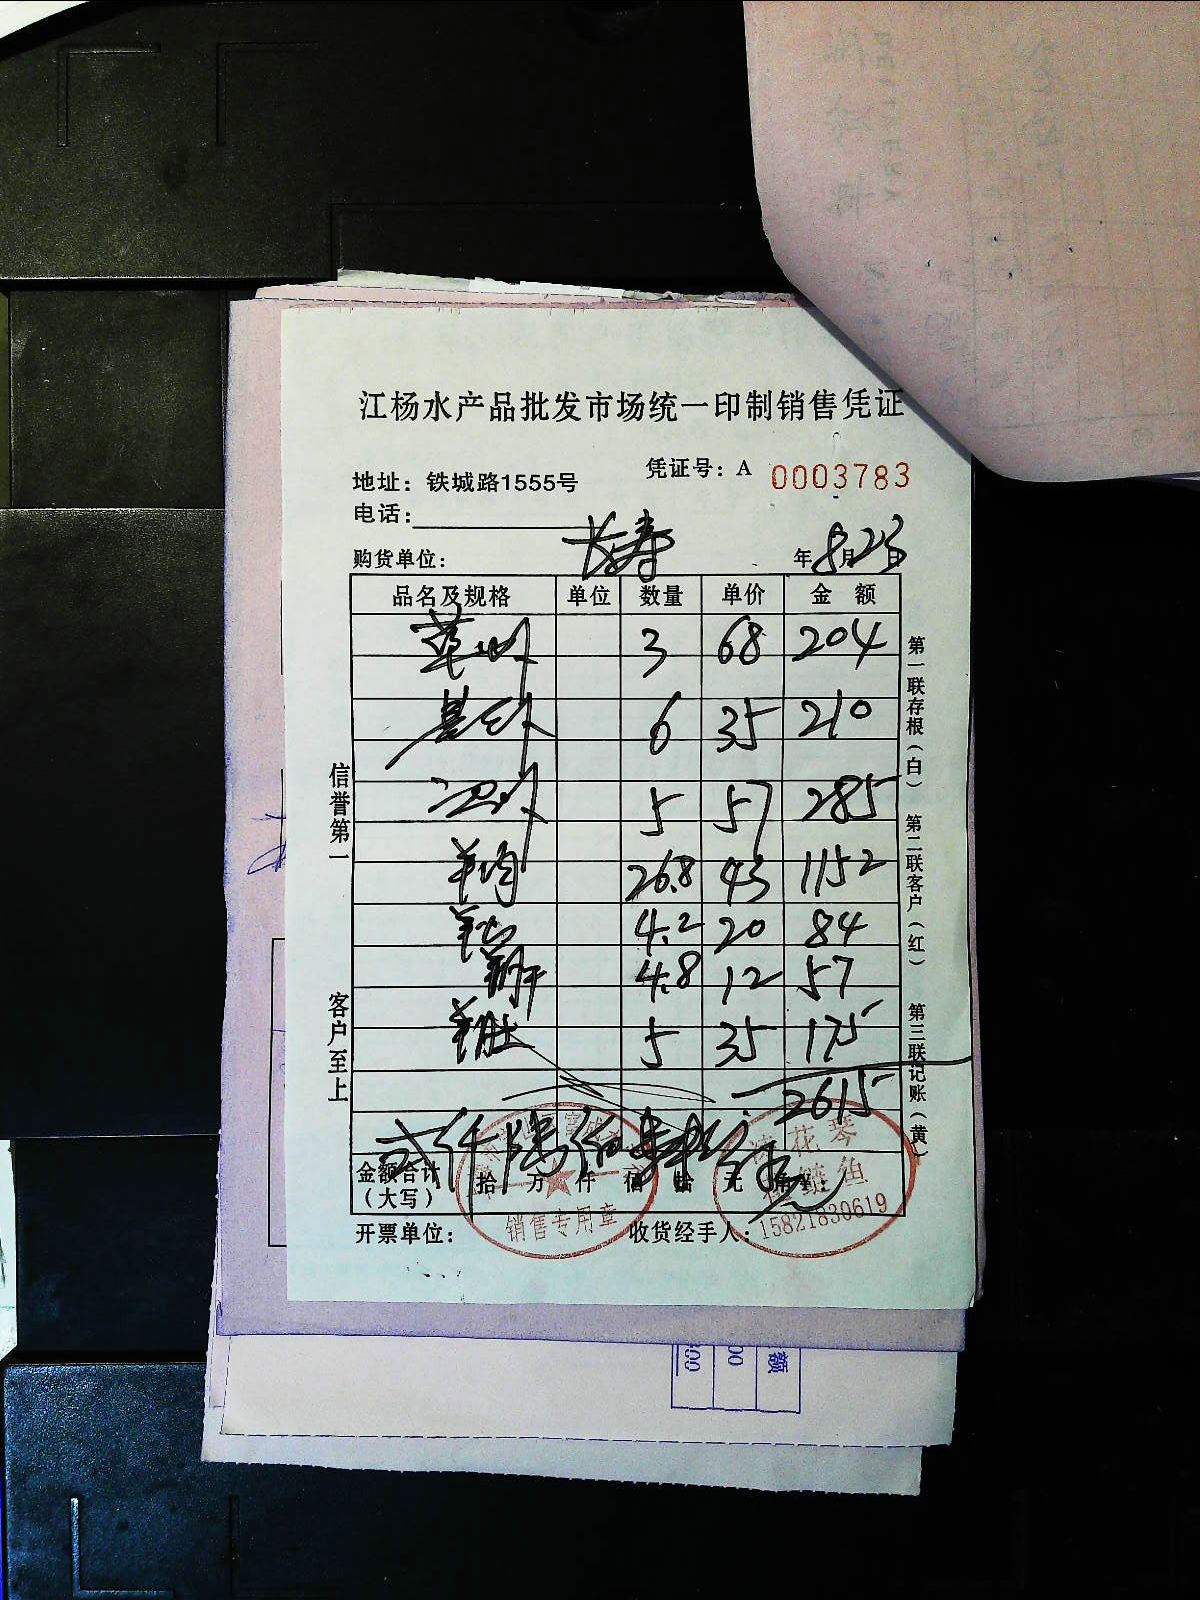 江杨水产品批发市场统一印制销售凭证
凭证号：A 0003783
地址：铁城路1555号
电话：
购货单位： 长寿 年8月23日
品名及规格 单位 数量 单价 金额
草虾 3 68 204
基围虾 6 35 210
5 57 285
羊肉 26.8 43 1152
4.2 20 84
4.8 12 57
羊肚 5 35 175
2615
金额合计（大写） 拾 万 仟 佰 拾 元 角
开票单位： 收货经手人：
信誉第一 客户至上
第一联存根（白） 第二联客户（红） 第三联记账（黄）
销售专用章
花琴
鲢鱼
15821830619
额
00
300